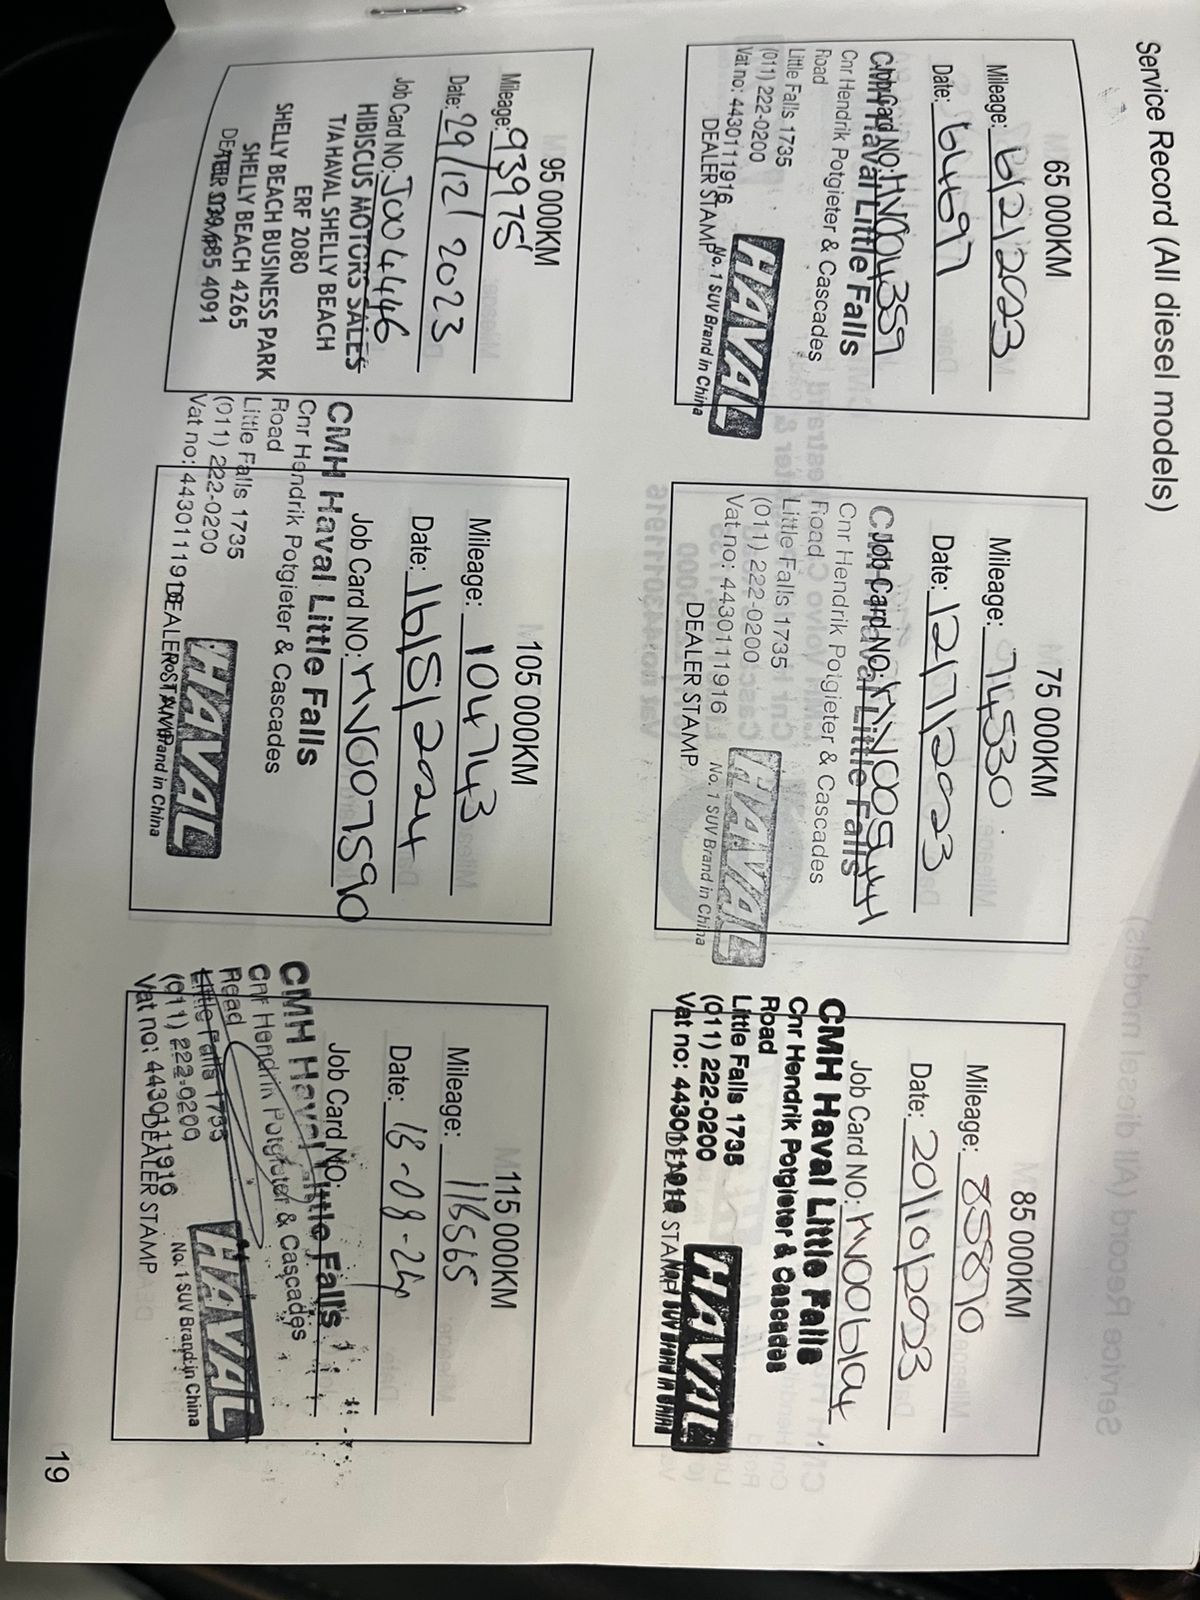 Service Record (All diesel models)
65 000KM
Mileage: 6/2/2023
Date: 64697
Job Card NO: HV004359
CMH Haval Little Falls
Cnr Hendrik Potgieter & Cascades
Road
Little Falls 1735
(011) 222-0200
Vat no: 4430111916
DEALER STAMP
HAVAL
No. 1 SUV Brand in China
75 000KM
Mileage: 74530
Date: 12/7/2023
Job Card NO:
CMH Haval Little Falls
Cnr Hendrik Potgieter & Cascades
Road
Little Falls 1735
(011) 222-0200
Vat no: 4430111916
DEALER STAMP
HAVAL
No. 1 SUV Brand in China
85 000KM
Mileage: 85870
Date: 20/10/2023
Job Card NO:
CMH Haval Little Falls
Cnr Hendrik Potgieter & Cascades
Road
Little Falls 1735
(011) 222-0200
Vat no: 4430111916
DEALER STAMP
HAVAL
No. 1 SUV Brand in China
95 000KM
Mileage: 93975
Date: 29/12/2023
Job Card NO: J004446
HIBISCUS MOTORS SALES
T/A HAVAL SHELLY BEACH
ERF 2080
SHELLY BEACH BUSINESS PARK
SHELLY BEACH 4265
DEALER STAMP
685 4091
105 000KM
Mileage: 104743
Date: 16/5/2024
Job Card NO: HV007590
CMH Haval Little Falls
Cnr Hendrik Potgieter & Cascades
Road
Little Falls 1735
(011) 222-0200
Vat no: 4430111916
DEALER STAMP
HAVAL
No. 1 SUV Brand in China
115 000KM
Mileage:
Date: 18-09-24
Job Card NO:
CMH Haval Little Falls
Cnr Hendrik Potgieter & Cascades
Road
Little Falls 1735
(011) 222-0200
Vat no: 4430111916
DEALER STAMP
HAVAL
No. 1 SUV Brand in China
19